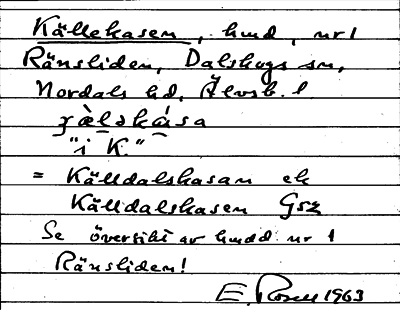 Källekasen, hmd, nr 1
Ränsliden, Dalskogs sn,
Nordals hd, Älvsb. l
"i K."
= Källdalskasan ek
Källdalskasen Gsz
Se översikt av hmdd nr 1
Ränsliden!
E. Rosell 1963